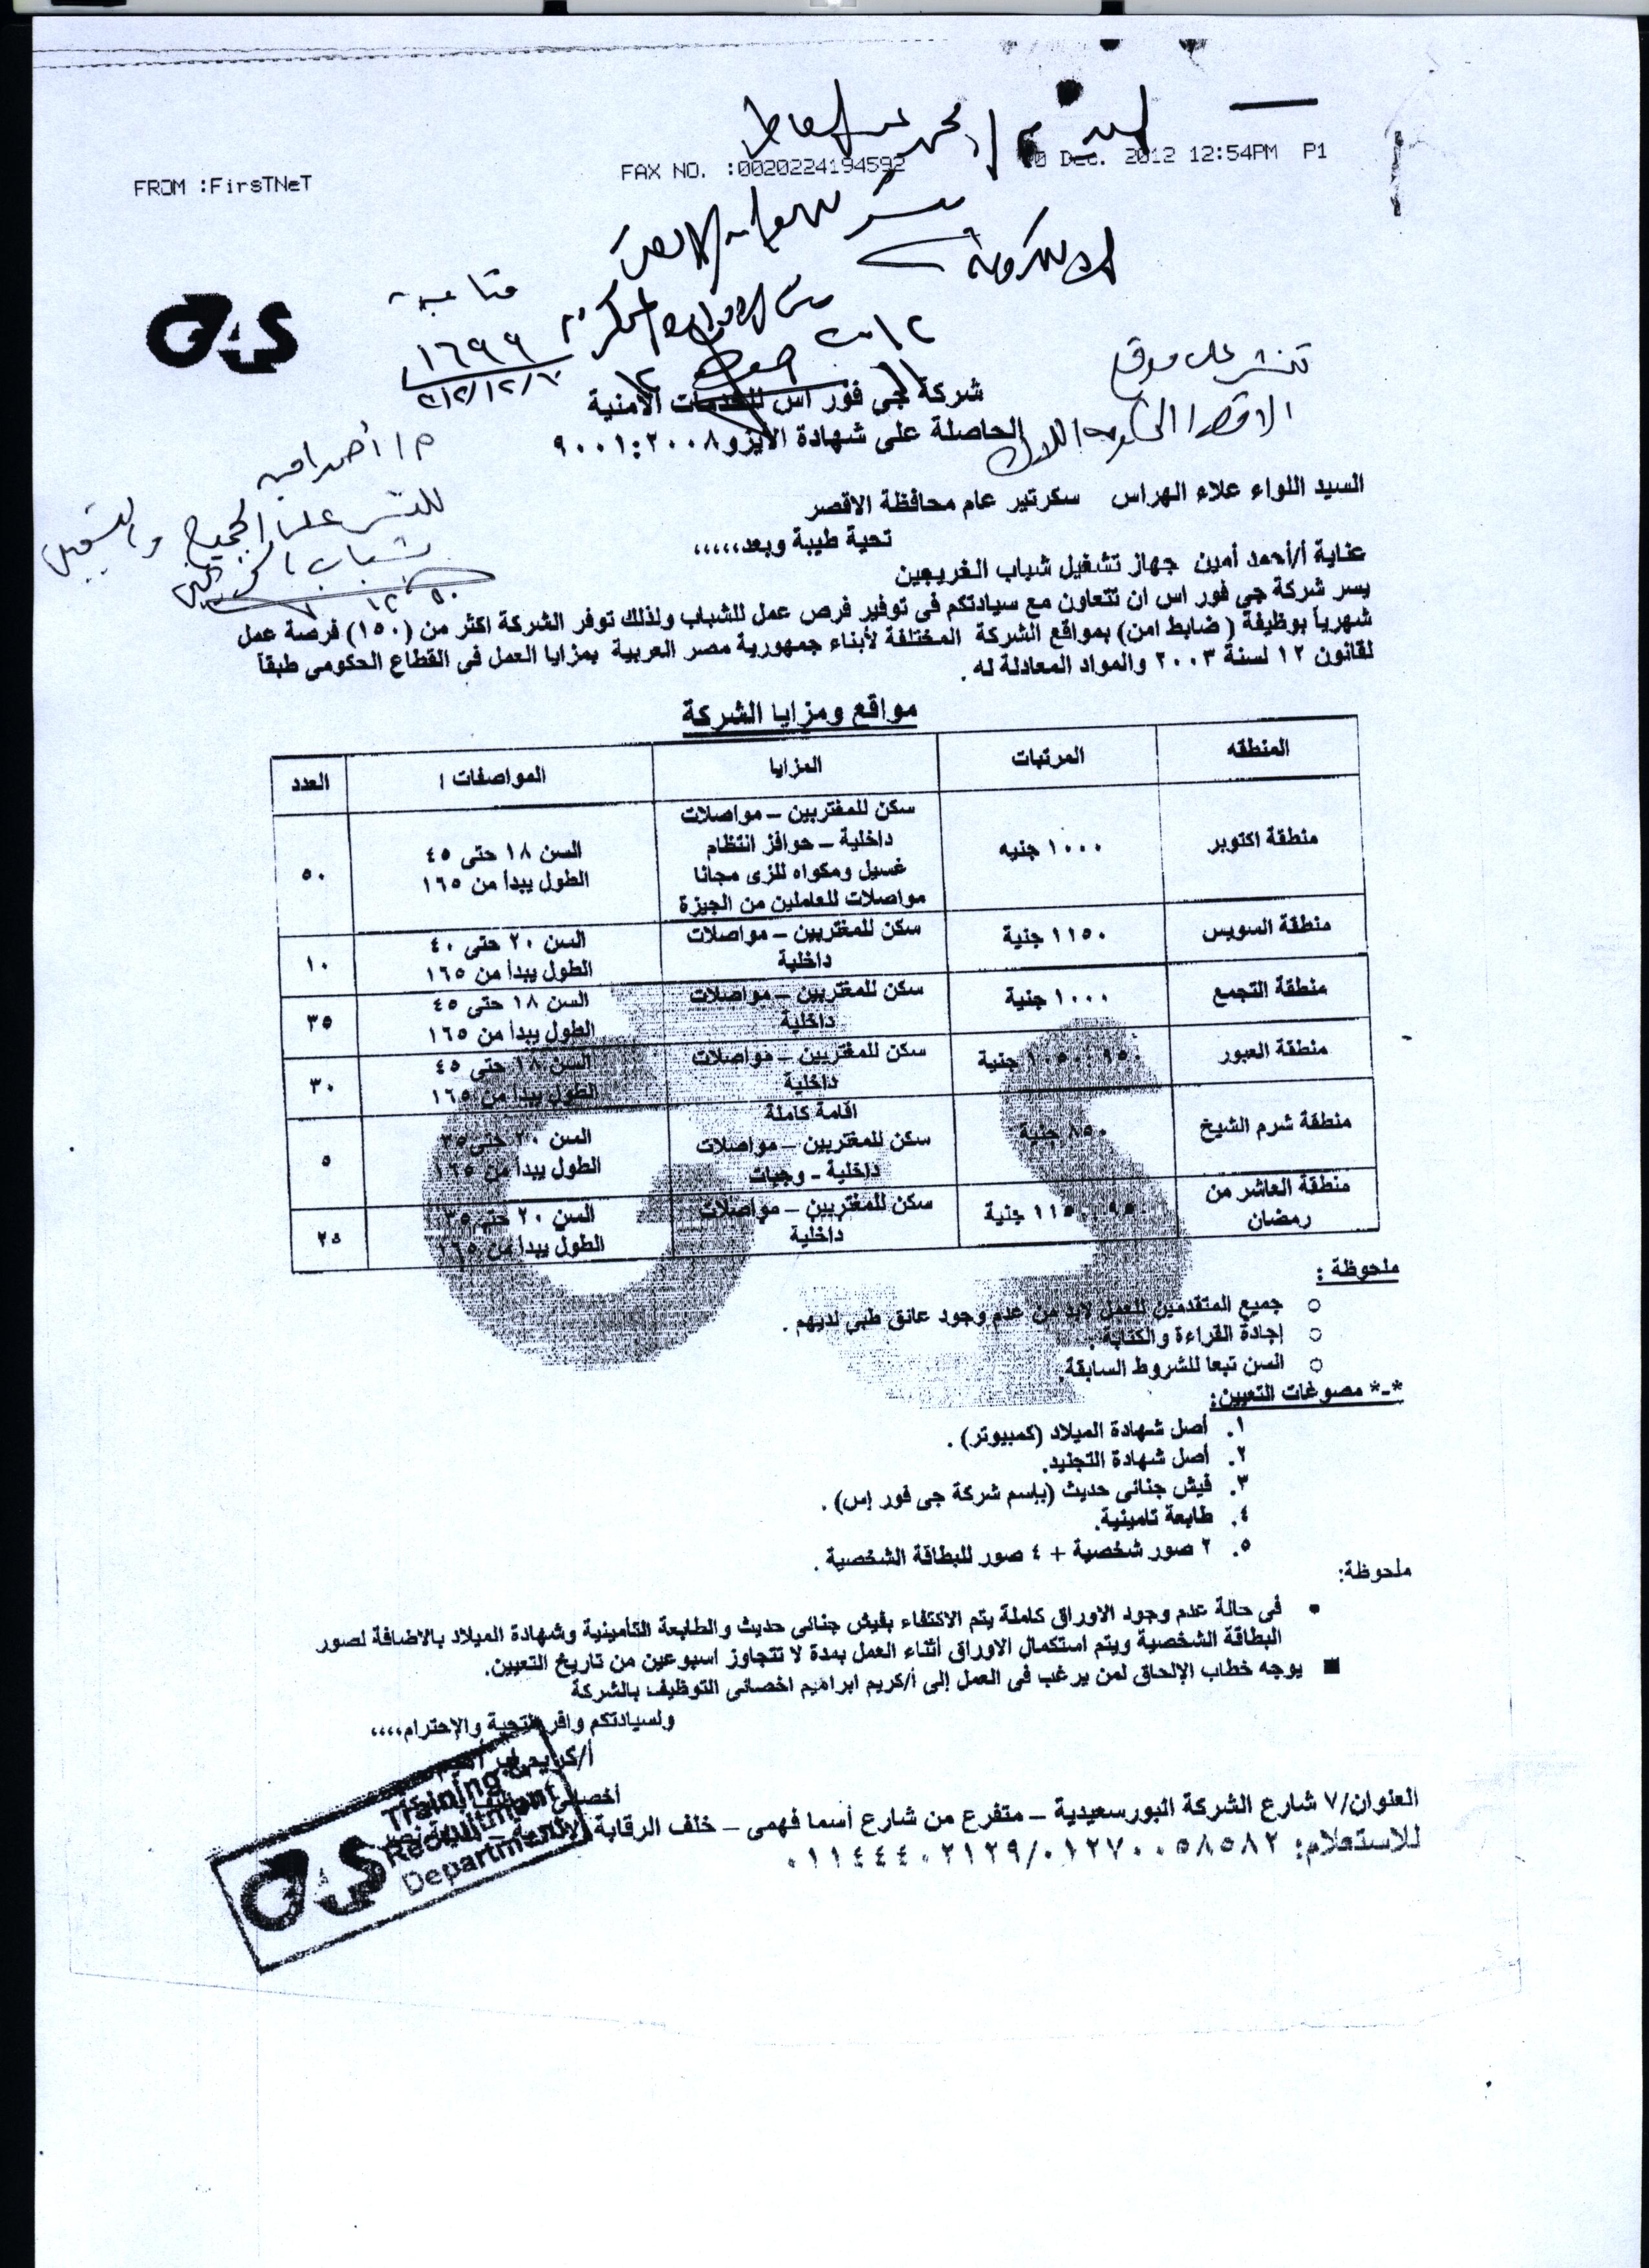 FROM :FirsTNeT FAX NO. :0020224194592 Dec. 2012 12:54PM P1
G4S
متابعة
١٦٩٩
تنشر على موقع
شركة جى فور اس للخدمات الامنية
الحاصلة على شهادة الايزو ٩٠٠١:٢٠٠٨
السيد اللواء علاء الهراس سكرتير عام محافظة الاقصر
تحية طيبة وبعد،،،،،
عناية أ/أحمد أمين جهاز تشغيل شباب الخريجين
يسر شركة جى فور اس ان تتعاون مع سيادتكم فى توفير فرص عمل للشباب ولذلك توفر الشركة اكثر من (١٥٠) فرصة عمل
شهرياً بوظيفة (ضابط امن) بمواقع الشركة المختلفة لأبناء جمهورية مصر العربية بمزايا العمل فى القطاع الحكومى طبقاً
لقانون ١٢ لسنة ٢٠٠٣ والمواد المعادلة له .
مواقع ومزايا الشركة
المنطقه المرتبات المزايا المواصفات / العدد
منطقة اكتوبر ١٠٠٠ جنيه سكن للمغتربين – مواصلات
داخلية – حوافز انتظام
غسيل ومكواه للزى مجانا
مواصلات للعاملين من الجيزة
السن ١٨ حتى ٤٥
الطول يبدأ من ١٦٥
٥٠
منطقة السويس ١١٥٠ جنية سكن للمغتربين – مواصلات
داخلية
السن ٢٠ حتى ٤٠
الطول يبدأ من ١٦٥
١٠
منطقة التجمع ١٠٠٠ جنية سكن للمغتربين – مواصلات
داخلية
السن ١٨ حتى ٤٥
الطول يبدأ من ١٦٥
٣٥
منطقة العبور ٩٥٠ : ١٠٥٠ جنية سكن للمغتربين – مواصلات
داخلية
السن ١٨ حتى ٤٥
الطول يبدأ من ١٦٥
٣٠
منطقة شرم الشيخ ٨٥٠ جنية اقامة كاملة
سكن للمغتربين – مواصلات
داخلية - وجبات
السن ٢٠ حتى ٣٥
الطول يبدأ من ١٦٥
٥
منطقة العاشر من
رمضان
٩٥٠ ١١٥٠ جنية سكن للمغتربين – مواصلات
داخلية
السن ٢٠ حتى ٣٥
الطول يبدأ من ١٦٥
٢٥
ملحوظة :
جميع المتقدمين للعمل لابد من عدم وجود عائق طبى لديهم .
إجادة القراءة والكتابة .
السن تبعا للشروط السابقة.
*-* مصوغات التعيين:
١. أصل شهادة الميلاد (كمبيوتر) .
٢. أصل شهادة التجنيد.
٣. فيش جنائى حديث (بإسم شركة جى فور إس) .
٤. طابعة تامينية.
٥. ٢ صور شخصية + ٤ صور للبطاقة الشخصية .
ملحوظة:
• فى حالة عدم وجود الاوراق كاملة يتم الاكتفاء بفيش جنائى حديث والطابعة التأمينية وشهادة الميلاد بالاضافة لصور
البطاقة الشخصية ويتم استكمال الاوراق أثناء العمل بمدة لا تتجاوز اسبوعين من تاريخ التعيين.
■ يوجه خطاب الإلحاق لمن يرغب فى العمل إلى أ/كريم ابراهيم اخصائى التوظيف بالشركة
ولسيادتكم وافر التحية والإحترام،،،،
أ/كريم ابراهيم
أخصائى
العنوان/٧ شارع الشركة البورسعيدية – متفرع من شارع أسما فهمى – خلف الرقابة الإدارية –
للاستعلام: ٠١١٤٤٤٠٢١٢٩/٠١٢٧٠٠٥٨٥٨٢
G4S
Training &
Recruitment
Department